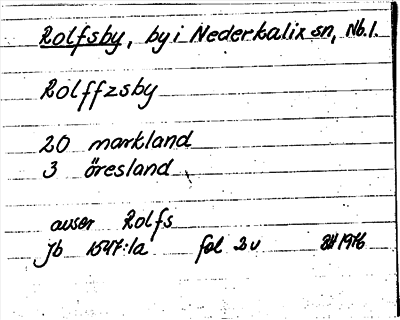 Rolfsby, by i Nederkalix sn, Nb.l.
Rolffzsby
20 markland
3 öresland
avser Rolfs
Jb 1547:1a fol 2v 1976